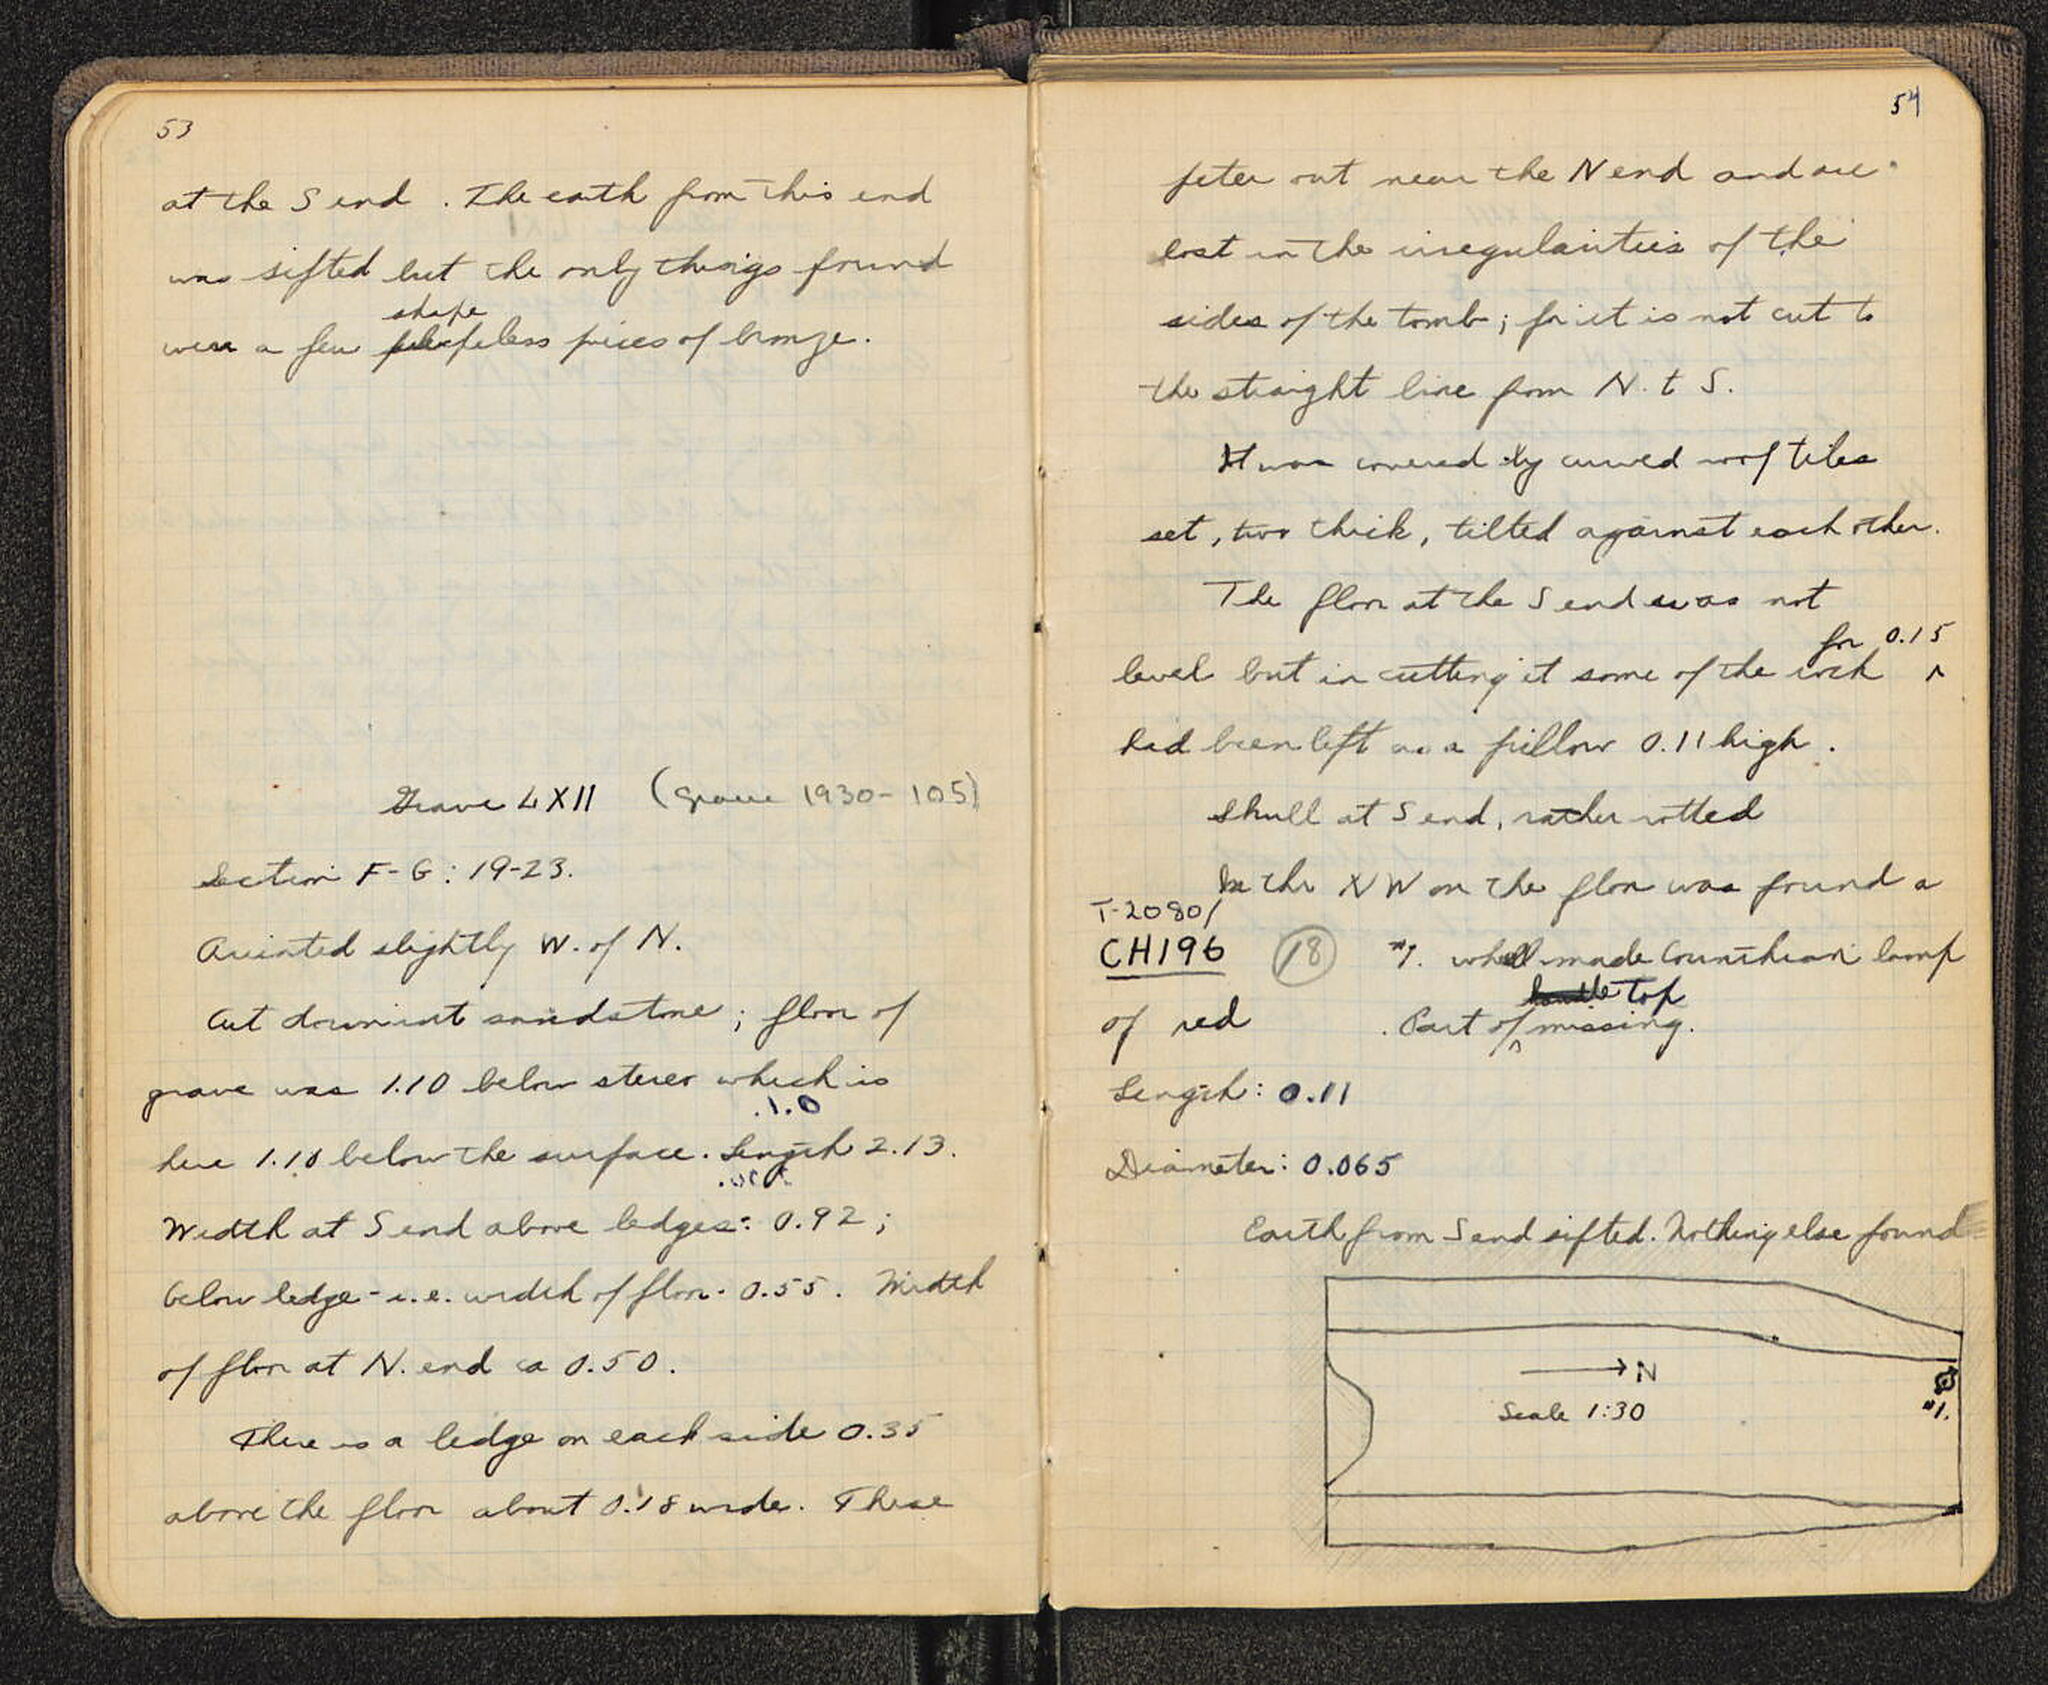 53
at the S end. The earth from this end
was sifted but the only things found
shape
were a few peless pieces of bronze.
Grave LXII (Grave 1930-105)
Section F-G: 19-23.
Oriented slightly W. of N.
Cut down into sandstone; floor of
grave was 1.10 below stereo which is
1.0
here 1.10 below the surface. Length 2.13.
Width at S end above ledges: 0.92;
below ledge - i.e. width of floor - 0.55. Width
of floor at N. end ca 0.50.
There is a ledge on each side 0.35
above the floor about 0.18 wide. These
54
peter out near the N end and are
lost in the irregularities of the
sides of the tomb; for it is not cut to
the straight line from N. t S.
It was covered by curved roof tiles
set, two thick, tilted against each other.
The floor at the S end was not
for 0.15
level but in cutting it some of the rock ^
had been left as a pillow 0.11 high.
Skull at S end, rather rotted
In the NW on the floor was found a
T-2080/
CH196 18 #1. wheel-made Corinthian lamp
handle top
of red . Part of ^ missing.
Length: 0.11
Diameter: 0.065
Earth from S end sifted. Nothing else found
→ N
Scale 1:30
#1.